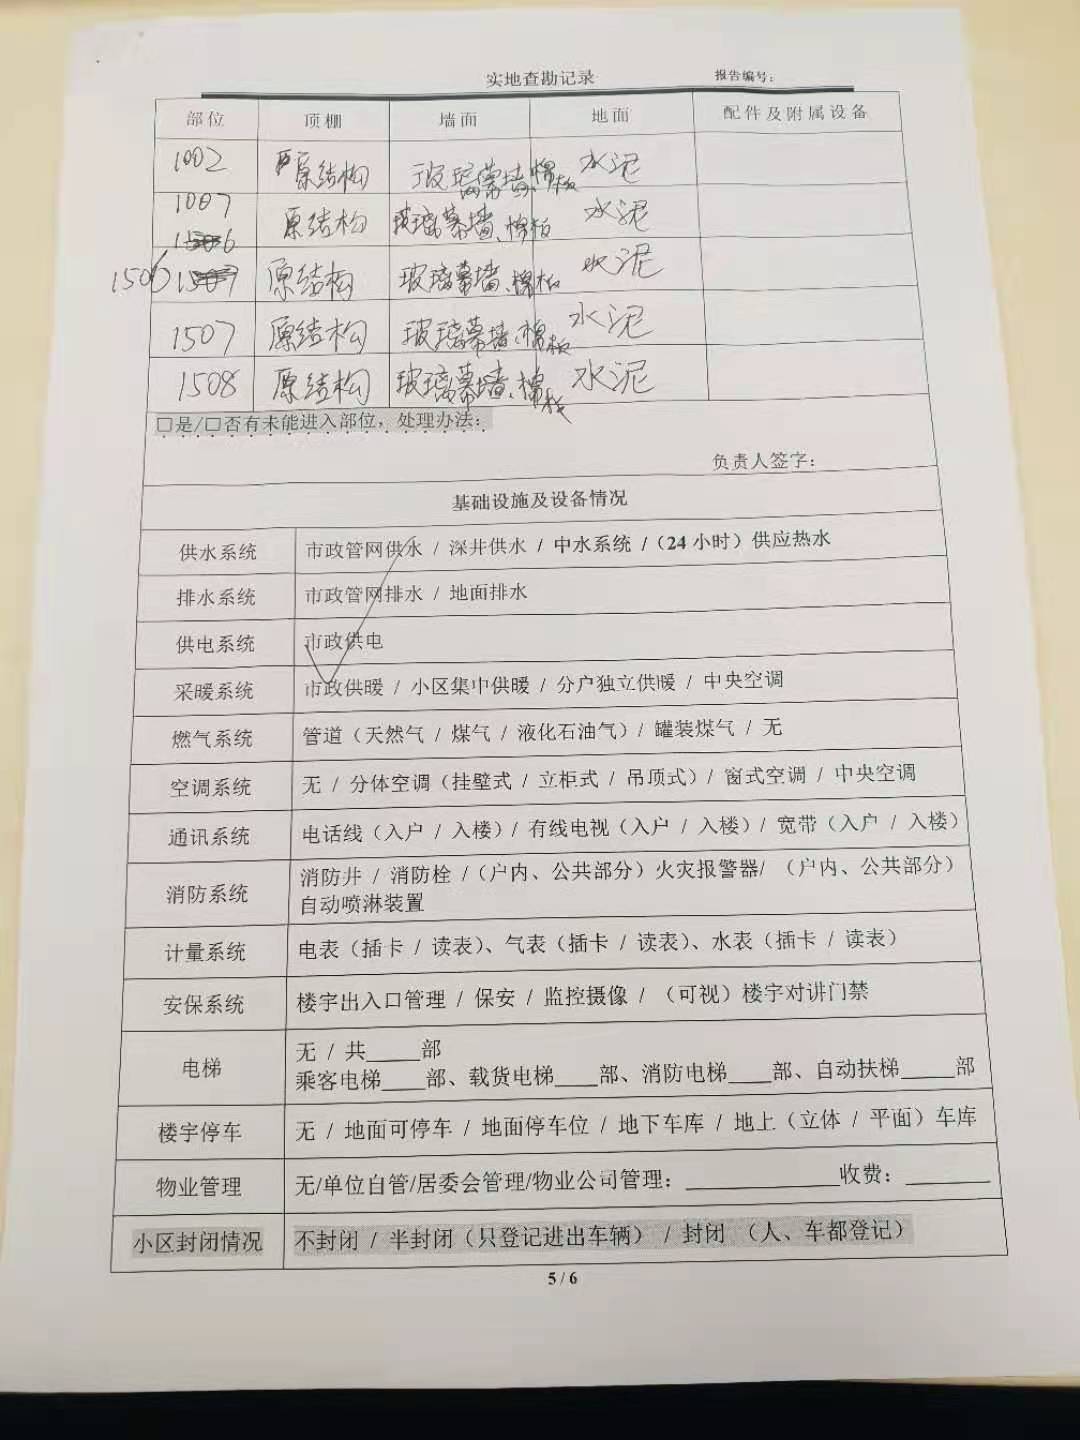 实地查勘记录 报告编号：
部位 顶棚 墙面 地面 配件及附属设备
1002 原结构 玻璃幕墙、棉板 水泥
1007 原结构 玻璃幕墙、棉板 水泥
1506 原结构 玻璃幕墙、棉板 水泥
1507 原结构 玻璃幕墙、棉板 水泥
1508 原结构 玻璃幕墙、棉板 水泥
□是/□否有未能进入部位，处理办法：
负责人签字：
基础设施及设备情况
供水系统 市政管网供水 / 深井供水 / 中水系统 /（24 小时）供应热水
排水系统 市政管网排水 / 地面排水
供电系统 市政供电
采暖系统 市政供暖 / 小区集中供暖 / 分户独立供暖 / 中央空调
燃气系统 管道（天然气 / 煤气 / 液化石油气）/ 罐装煤气 / 无
空调系统 无 / 分体空调（挂壁式 / 立柜式 / 吊顶式）/ 窗式空调 / 中央空调
通讯系统 电话线（入户 / 入楼）/ 有线电视（入户 / 入楼）/ 宽带（入户 / 入楼）
消防系统 消防井 / 消防栓 /（户内、公共部分）火灾报警器/ （户内、公共部分）
自动喷淋装置
计量系统 电表（插卡 / 读表）、气表（插卡 / 读表）、水表（插卡 / 读表）
安保系统 楼宇出入口管理 / 保安 / 监控摄像 / （可视）楼宇对讲门禁
电梯 无 / 共_____部
乘客电梯____部、载货电梯____部、消防电梯____部、自动扶梯_____部
楼宇停车 无 / 地面可停车 / 地面停车位 / 地下车库 / 地上（立体 / 平面）车库
物业管理 无/单位自管/居委会管理/物业公司管理：______________收费：________
小区封闭情况 不封闭 / 半封闭（只登记进出车辆） / 封闭 （人、车都登记）
5 / 6